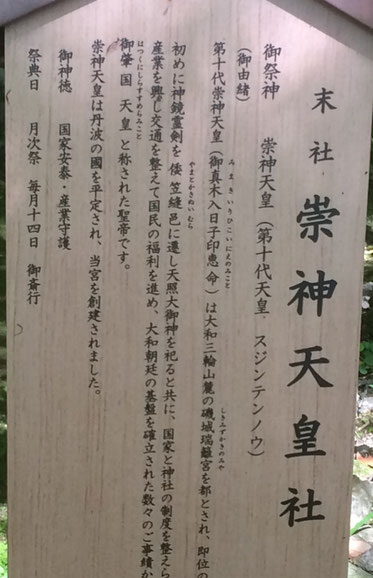 末社 崇神天皇社
御祭神 崇神天皇(第十代天皇 スジンテンノウ)
(御由緒)
第十代崇神天皇(御真木入日子印恵命)は大和三輪山麓の磯城瑞籬宮を都とされ、即位の
みまきいりひこいにえのみこと
しきみずかきのみや
初めに神鏡霊剣を倭笠縫邑に遷し天照大御神を祀ると共に、国家と神社の制度を整えら
やまとかさぬいむら
産業を興し交通を整えて国民の福利を進め、大和朝廷の基盤を確立された数々のご事績か
御肇国天皇と称された聖帝です。
はつくにしらすすめらみこと
崇神天皇は丹波の國を平定され、当宮を創建されました。
御神徳 国家安泰・産業守護
祭典日 月次祭 毎月十四日 御斎行